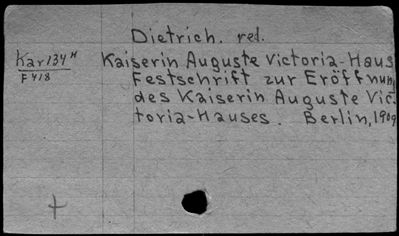 Dietrich. red.
Kar134ᴴ
F418
Kaiserin Auguste Victoria-Haus
Festschrift zur Eröffnung
des Kaiserin Auguste Vic-
toria-Hauses. Berlin, 1909